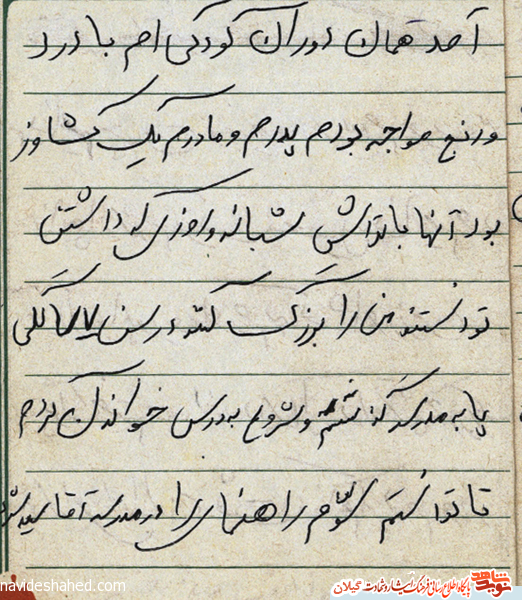 آمد همان دوران کودکی ام با درد
و رنج مواجه بودم پدرم و مادرم یک کشاورز
بود آنها با تلاش شبانه و روزی که داشتن
توانستن من را بزرگ کنند در سن ۷ سالگی
پا به مدرسه گذاشتم و شروع به درس خواندن کردم
تا توانستم سوم راهنمای را در مدرسه آقا سید
navideshahed.com
نوید شاهد
پایگاه اطلاع رسانی فرهنگ ایثار و شهادت گیلان